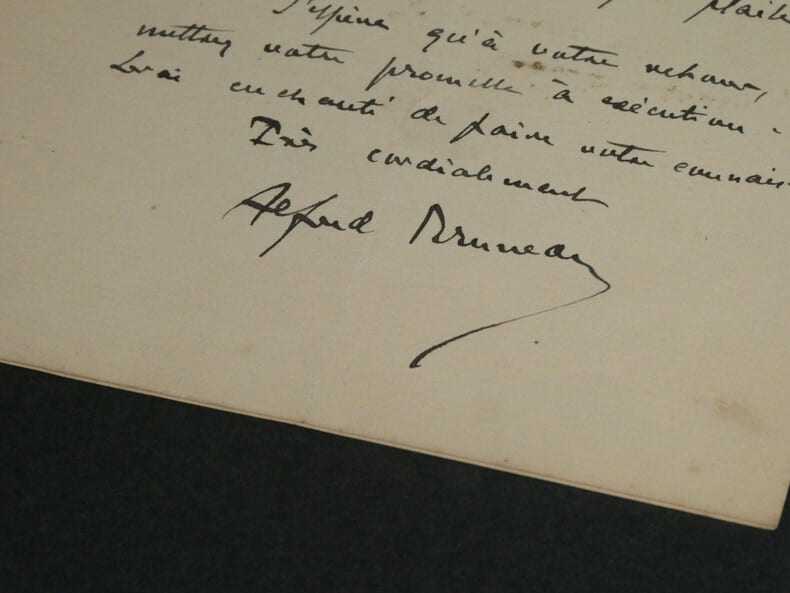 J'espère qu'à votre retour,
mettrez votre promesse à exécution.
serai enchanté de faire votre connais
Très cordialement
Alfred Bruneau